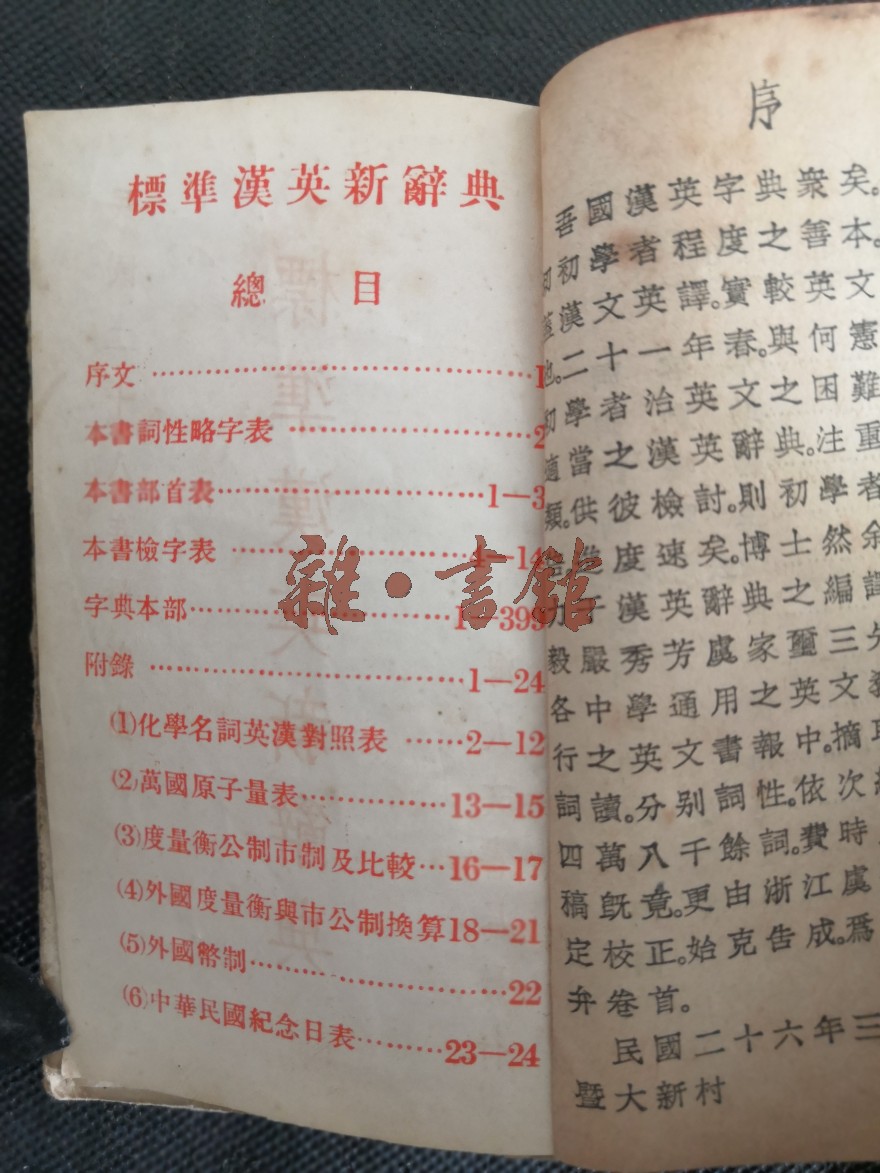 標準漢英新辭典
總目
序文 ………………………………1
本書詞性略字表…………………………2
本書部首表…………………………1—3
本書檢字表 ………………………4—14
字典本部……………………………1—399
附錄 …………………………………1—24
(1)化學名詞英漢對照表 ……2—12
(2)萬國原子量表………………13—15
(3)度量衡公制市制及比較…16—17
(4)外國度量衡與市公制換算18—21
(5)外國幣制………………………22
(6)中華民國紀念日表………23—24
雜·書館
序
吾國漢英字典衆矣。
初學者程度之善本。
漢文英譯。實較英文
也。二十一年春。與何憲
初學者治英文之困難
適當之漢英辭典。注重
類。供彼檢討。則初學者
進度速矣。博士然余
力于漢英辭典之編譯
毅嚴秀芳虞家璽三
各中學通用之英文
行之英文書報中。摘
詞讀。分別詞性。依次
四萬八千餘詞。費時
稿旣竟。更由浙江虞
定校正。始克告成。爲
弁卷首。
民國二十六年三
暨大新村